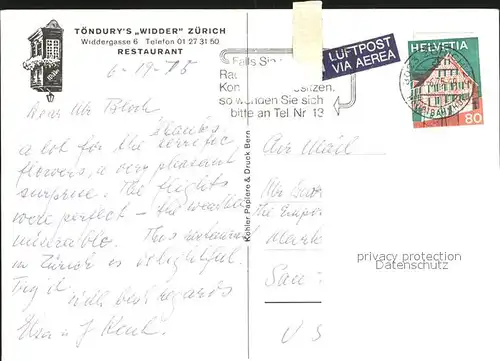 TÖNDURY'S „WIDDER" ZÜRICH
Widdergasse 6 Telefon 01 27 31 50
RESTAURANT
6-19-75
Dear Mr Bloch
Thanks
a lot for the terrific
flowers, a very pleasant
surprise. The flights
were perfect – the weather
miserable. This restaurant
in Zürich is delightful.
Try it
with best regards
Elsa
Kohler Papiere & Druck Bern
Falls Sie
Ra
Kon sitzen,
so wenden Sie sich
bitte an Tel Nr 13
LUFTPOST
VIA AEREA
HELVETIA
80
Air Mail
Mr
The
Mark
San
U S
privacy protection
Datenschutz